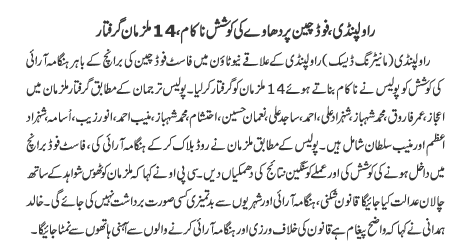 راولپنڈی، فوڈ چین پر دھاوے کی کوشش ناکام، 14 ملزمان گرفتار
راولپنڈی (مانیٹرنگ ڈیسک) راولپنڈی کے علاقے نیو ٹاؤن میں فاسٹ فوڈ چین کی برانچ کے باہر ہنگامہ آرائی
کی کوشش کو پولیس نے ناکام بناتے ہوئے 14 ملزمان کو گرفتار کر لیا۔ پولیس ترجمان کے مطابق گرفتار ملزمان میں
اعجاز، عمر فاروق، محمد شہباز، شہزاد علی، احمد، ساجد علی، نعمان حسین، احتشام، محمد شہباز، منیب احمد، انور زیب، اُسامہ، شہزاد
اعظم اور منیب سلطان شامل ہیں۔ پولیس کے مطابق ملزمان نے روڈ بلاک کر کے ہنگامہ آرائی کی، فاسٹ فوڈ برانچ
میں داخل ہونے کی کوشش کی اور عملے کو سنگین نتائج کی دھمکیاں دیں۔ سی پی او نے کہا کہ ملزمان کو ٹھوس شواہد کے ساتھ
چالان عدالت کیا جائیگا قانون شکنی، ہنگامہ آرائی اور شہریوں سے بدتمیزی کسی صورت برداشت نہیں کی جائے گی۔ خالد
ہمدانی نے کہا کہ واضح پیغام ہے قانون کی خلاف ورزی اور ہنگامہ آرائی کرنے والوں سے آہنی ہاتھوں سے نمٹا جائیگا۔